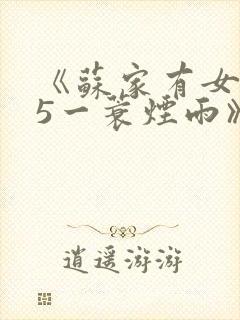 《蘇家有女
5一蓑煙雨》
逍遥游游